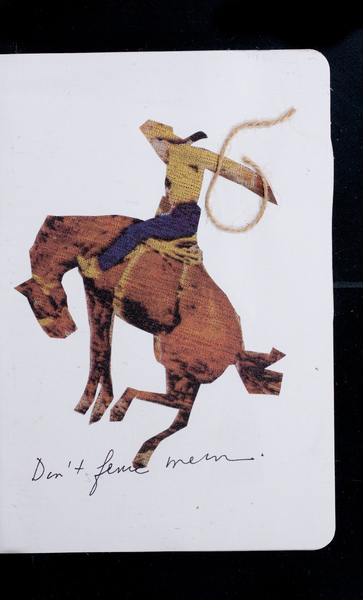 Don't fence me in.